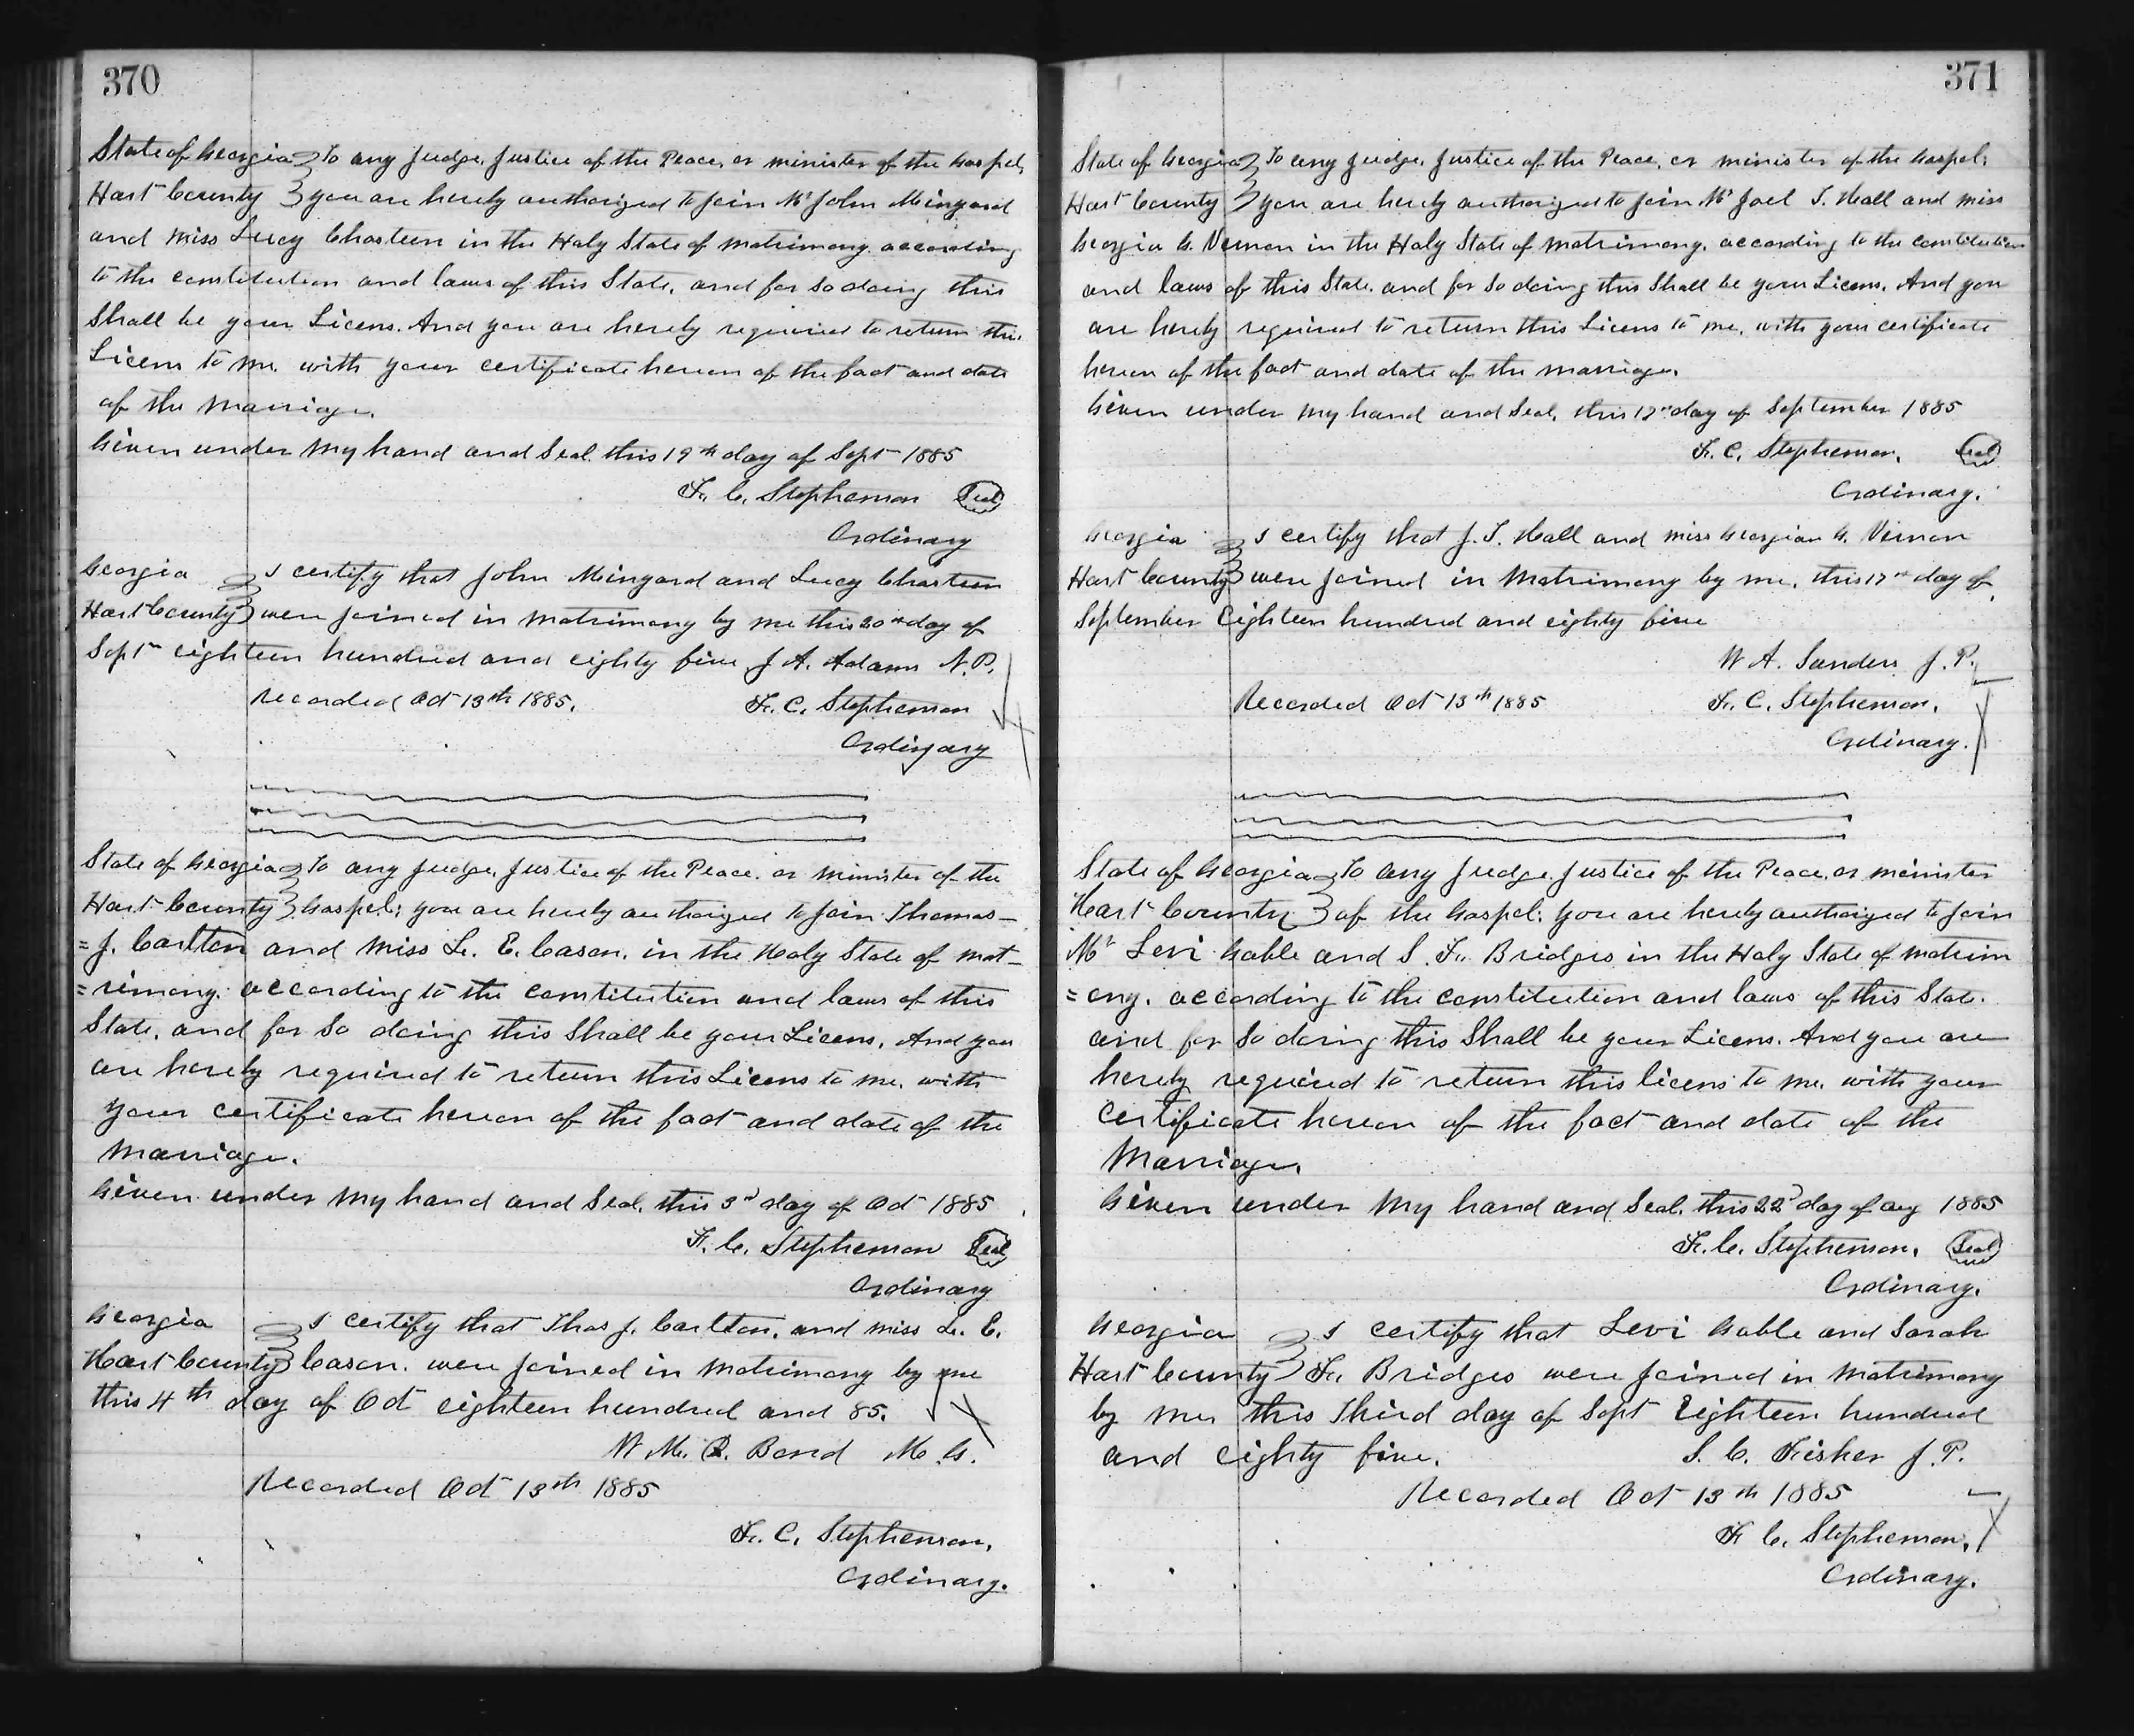 370
State of Georgia } To any Judge, Justice of the Peace, or minister of the Gospel,
Hart County } you are hereby authorized to join Mr John Mingard
and Miss Lucy Chasteen in the Holy State of matrimony. according
to the constitution and laws of this State, and for so doing this
Shall be your Licens. And you are hereby required to return this
Licens to me, with your certificate hereon of the fact and date
of the Marriage.
Given under my hand and Seal. this 19th day of Sept 1885
F. C. Stephenson Seal
Ordinary
Georgia } I certify that John Mingard and Lucy Chasteen
Hart County } were joined in matrimony by me this 20th day of
Sept eighteen hundred and eighty five J A. Adams N.P.
recorded Oct 13th 1885. F. C. Stephenson
Ordinary
State of Georgia } To any Judge, Justice of the Peace. or minister of the
Hart County } Gospel; you are hereby authorized to join Thomas
= J. Carlton and Miss L. E. Cason, in the Holy State of mat-
= rimony. according to the constitution and laws of this
State, and for So doing this Shall be your Licens, And you
are hereby required to return this Licens to me, with
your certificate hereon of the fact and date of the
Marriage.
Given under my hand and Seal, this 3d day of Oct 1885
F. C. Stephenson Seal
Ordinary
Georgia } I certify that Thos J. Carlton, and Miss L. E.
Hart County } Cason. were joined in Matrimony by me
this 4th day of Oct eighteen hundred and 85.
W M. R. Bond M. G.
Recorded Oct 13th 1885
F. C. Stephenson,
Ordinary.
371
State of Georgia } To any Judge, Justice of the Peace, or minister of the Gospel;
Hart County } you are hereby authorized to join Mr Joel T. Hall and miss
Georgia G. Vernon in the Holy State of Matrimony, according to the constitution
and laws of this State, and for So doing this Shall be your Licens. And you
are hereby required to return this Licens to me, with your certificate
hereon of the fact and date of the marriage.
Given under my hand and Seal, this 17th day of September 1885
F. C. Stephenson, Seal
Ordinary.
Georgia } I certify that J. T. Hall and miss Georgian G. Vernon
Hart County } were joined in Matrimony by me, this 17th day of
September Eighteen hundred and eighty five
W A. Sanders J. P.
Recorded Oct 13th 1885 F. C. Stephenson,
Ordinary.
State of Georgia } To any Judge, Justice of the Peace, or minister
Hart County } of the Gospel; you are hereby authorized to join
Mr Levi Gable and S. F. Bridges in the Holy State of matrim
= ony, according to the constitution and laws of this State.
and for So doing this Shall be your Licens. And you are
hereby required to return this licens to me. with your
certificate hereon of the fact and date of the
Marriage.
Given under my hand and Seal. this 22d day of aug 1885
F. C. Stephenson, Seal
Ordinary.
Georgia } I certify that Levi Gable and Sarah
Hart County } F. Bridges were joined in matrimony
by me this Third day of Sept Eighteen hundred
and eighty five. S. C. Fisher J. P.
Recorded Oct 13th 1885
F. C. Stephenson,
Ordinary.